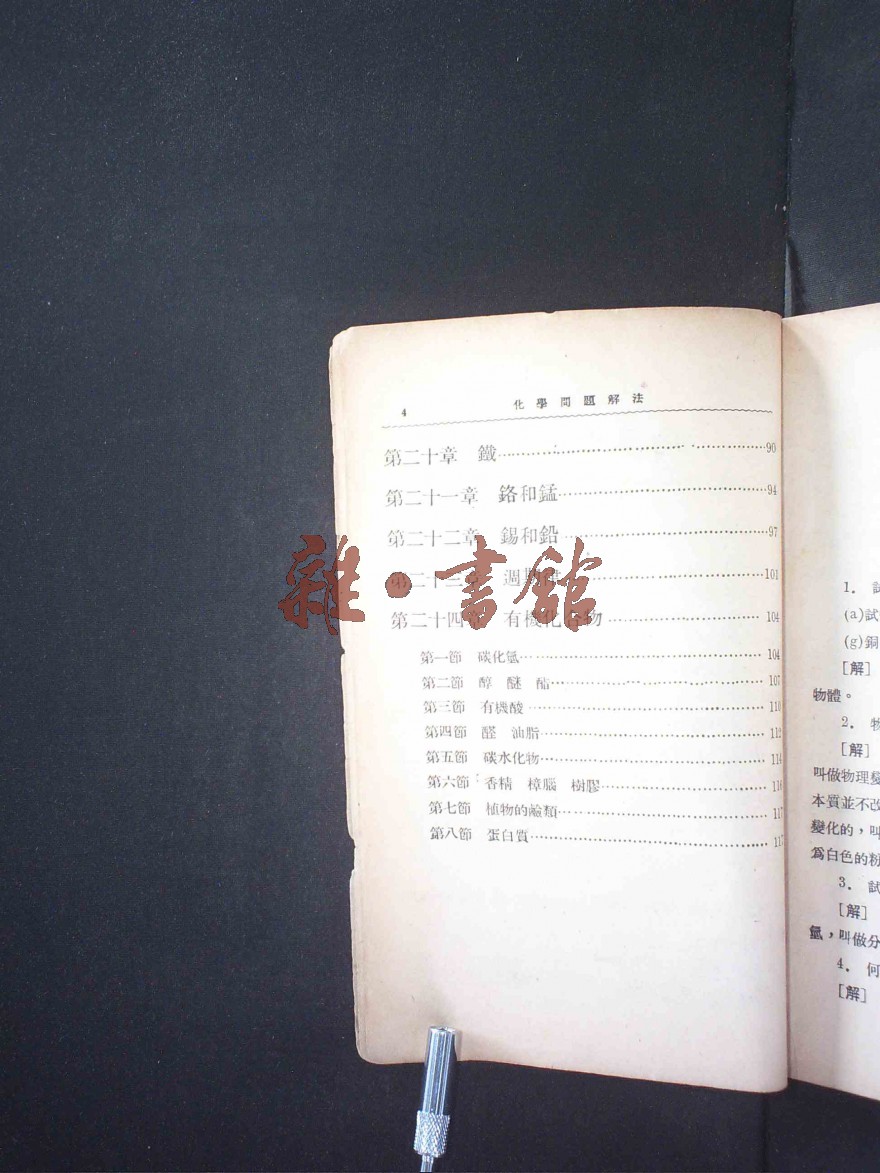 4 化學問題解法
第二十章 鐵……90
第二十一章 鉻和錳……94
第二十二章 錫和鉛……97
第二十三章 週期律……101
第二十四章 有機化合物……104
第一節 碳化氫……104
第二節 醇 醚 酯……107
第三節 有機酸……110
第四節 醛 油脂……112
第五節 碳水化物……114
第六節 香精 樟腦 樹膠……116
第七節 植物的鹼類……117
第八節 蛋白質……117
雜·書館
1. 試
(a)試
(g)銅
[解]
物體。
2. 物
[解]
叫做物理變
本質並不改
變化的，叫
爲白色的粉
3. 試
[解]
氫，叫做分
4. 何
[解]